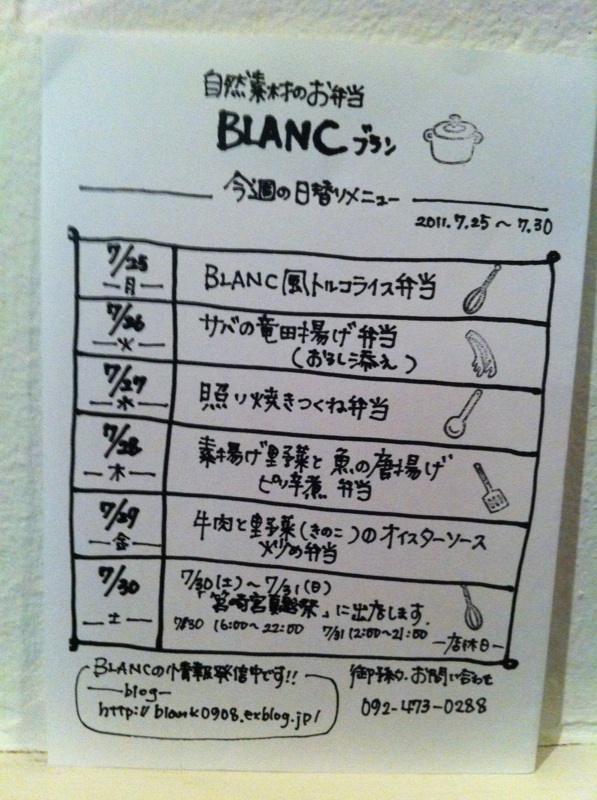 自然素材のお弁当
BLANC ブラン
今週の日替りメニュー
2011.7.25〜7.30
7/25
月
BLANC風トルコライス弁当
7/26
火
サバの竜田揚げ弁当
(おろし添え)
7/27
水
照り焼きつくね弁当
7/28
木
素揚げ野菜と魚の唐揚げ
ピリ辛煮 弁当
7/29
金
牛肉と野菜(きのこ)のオイスターソース
炒め弁当
7/30
土
7/30(土)〜7/31(日)
「筥崎宮 」に出店します。
7/30 16:00〜22:00 7/31 12:00〜21:00
店休日
BLANCの情報発信中です!!
blog
http://blank0908.exblog.jp/
御予約、お問い合わせ
092-473-0288